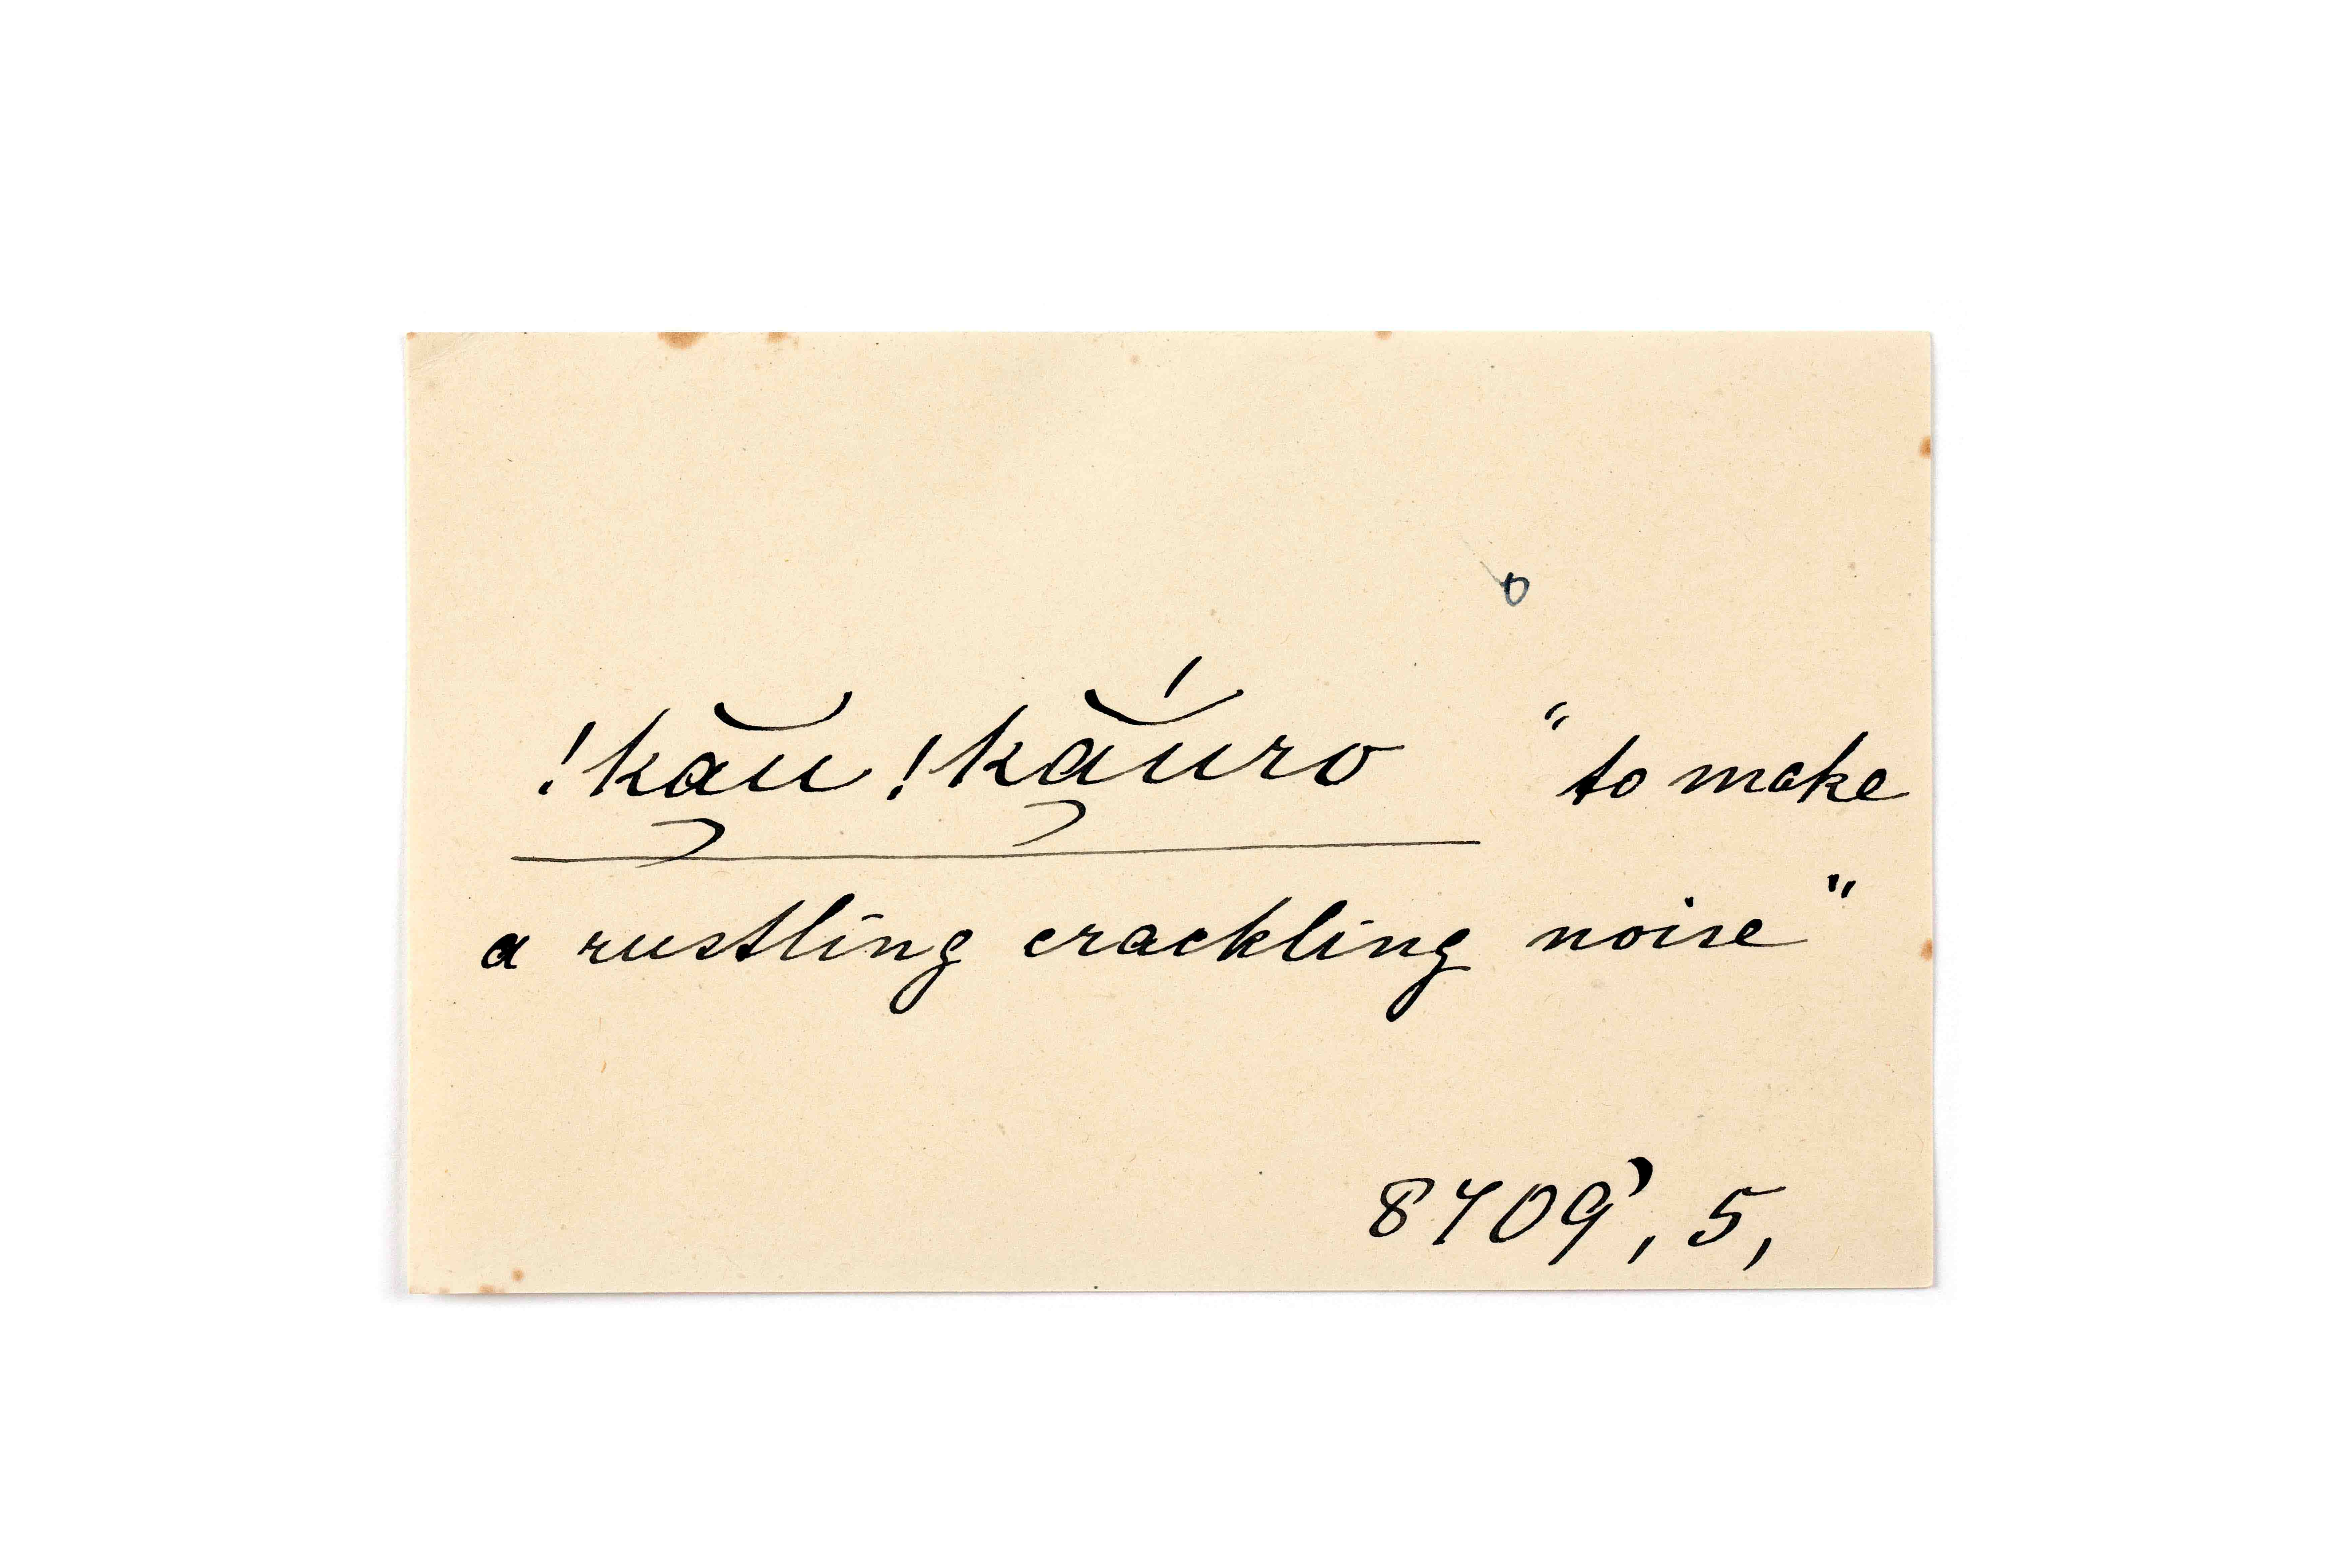 o
!kău !kắuro "to make
a rustling crackling noise"
8709', 5,